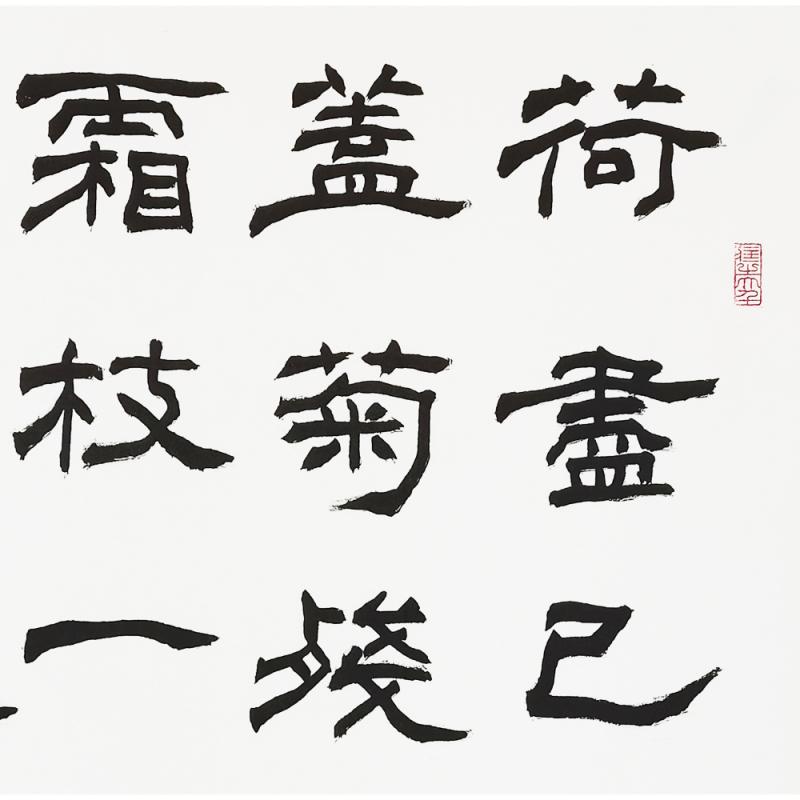 荷盡已
蓋菊殘
霜枝一